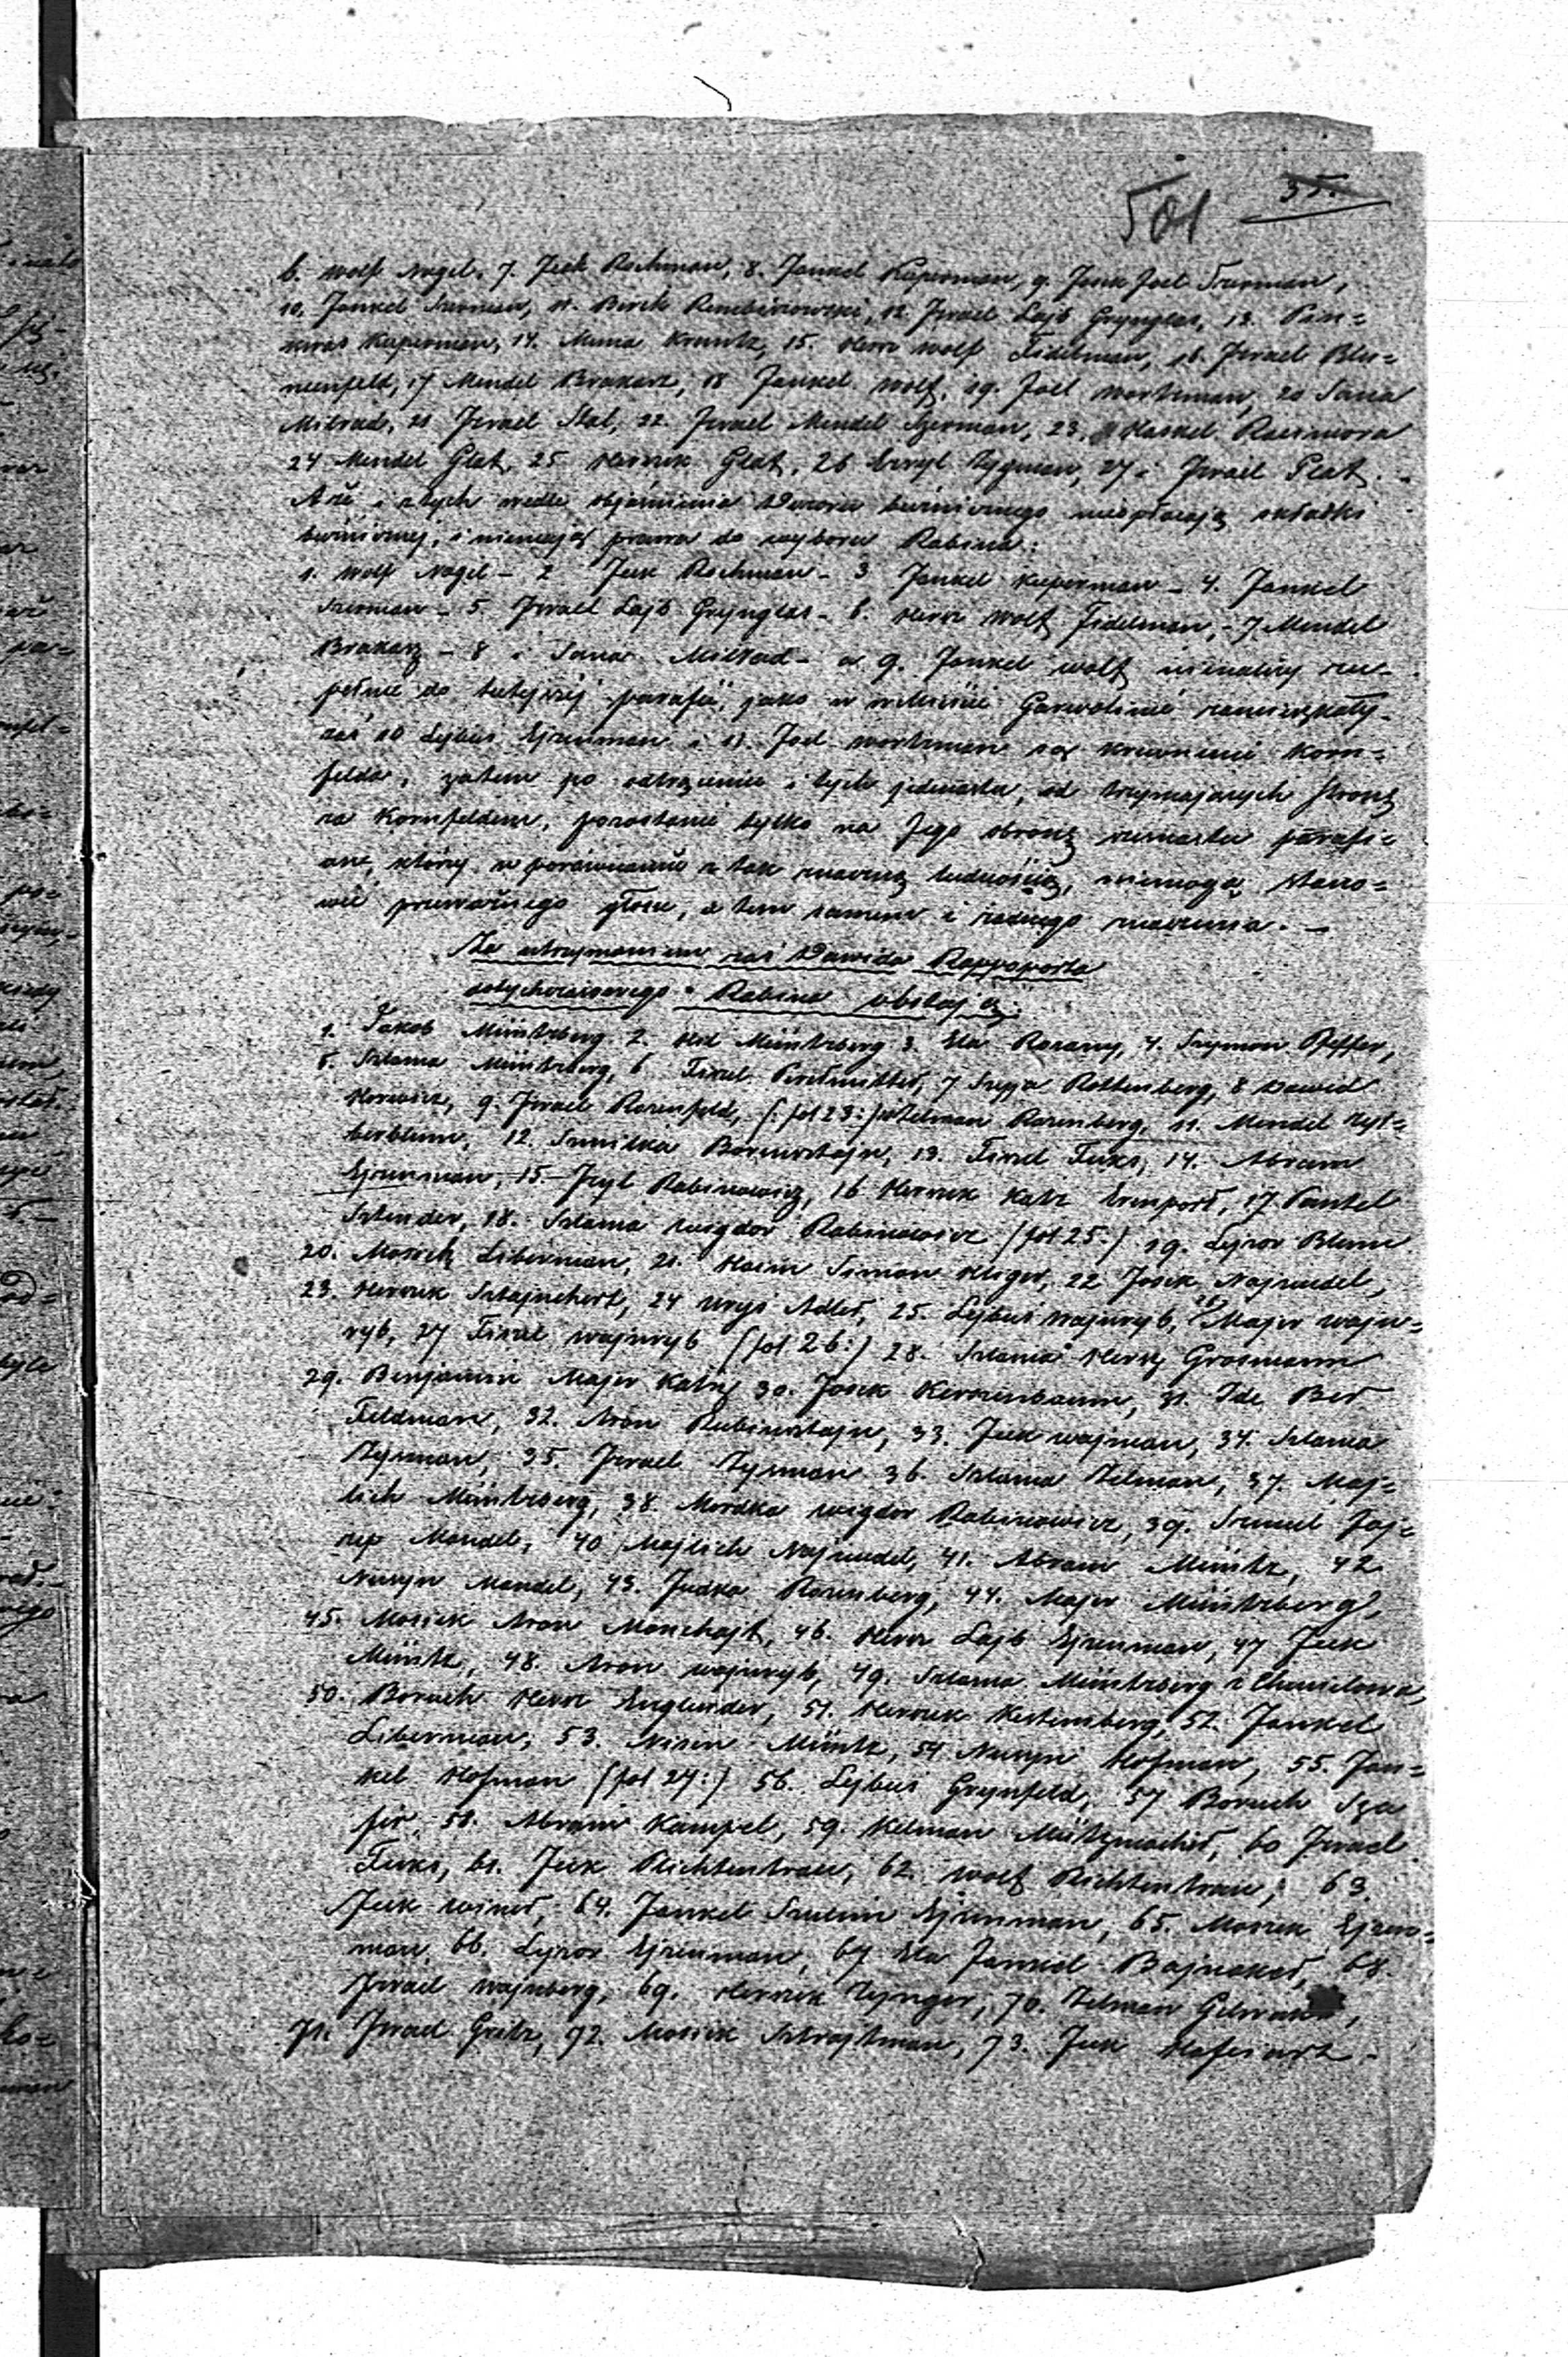 35.
501
6. Wolf Nagel, 7. Jcek Rochman, 8. Jankel Kuperman, 9. Josek Joel Szerman,
10. Jankel Szerman, 11. Berek Rembiszowski, 12. Jzrael Lajb Grynglas, 13. Pin=
kwas Kuperman, 14. Muna Krantz, 15. Hersz Wolf Fidelman, 16. Jzrael Blu=
menfeld, 17 Mendel Brakarz, 18 Jankel Wolf, 19. Joel Wortman, 20 Sana
Milrad, 21 Jzrael Stal, 22. Jzrael Mendel Szerman, 23. Haskel
24 Mendel Glat, 25 Herszek Glat, 26 Zygman, 27 i Jzrael Plat. -
A że i z tych wedle objaśnienia Dozoru bużniczego nie płacają składki
bużniczej, i niemają prawa do wyboru Rabina:
1. Wolf Nagel - 2 Jcek Rochman - 3 Jankel Kuperman - 4. Jankel
Szerman - 5. Jzrael Lajb Grynglas - 6. Hersz Wolf Fidelman, - 7 Mendel
Brakarz - 8 i Sana Milrad - a 9. Jankel Wolf nienależy zu=
pełnie do tutejszej parafii, jako w mieście Garwolinie zamieszkały -
zaś 10 Lejbuś Ejzenman i 11. Joel Wortman są krewnemi Korn=
felda, zatem po odtrąceniu i tych jedenastu, od trzymających stronę
za Kornfeldem, pozostanie tylko na Jego obronę szesnastu parafi=
an, którzy w porównaniu z tak znaczną ludnością, niemogą stano=
wić przeważnego głosu, a tem samem i żadnego znaczenia. -
Za utrzymaniem zaś Dawida Rappoporta
dotychczasowego Rabina obstają:
1. Jakob Müntzberg 2. Hil Müntzberg 3. Ela Rozany, 4. Szymon Pfeffer,
5. Szlama Müntzberg, 6 Fiszel 7 Rottenberg, 8 Dawid
Horowicz, 9. Jzrael Rozenfeld, (: fol 23:) 10 Zelman Rozenberg, 11. Mendel Zyl=
berblum, 12. Szmilka Borensztajn, 13. Fiszel Fuks, 14. Abram
Ejzenman, 15.- Jcyk Rabinowicz, 16 Herszek Katz 17.
Szlender, 18. Szlama Wigdor Rabinowicz (fol 25:) 19. Lejzor Blum
20. Moszek Liberman, 21. Haim Simon Kliger, 22 Josek Najnudel,
23. Herszek Sztajnhert, 24 Adler, 25. Lejbuś Wajnryb, 26 Majer Wajn=
ryb, 27 Fiszel Wajnryb (fol 26:) 28. Szlama Hersz Grosmann
29. Benjamin Majer Katz 30. Josek Kerszenbaum, 31. Ide Ber
Feldman, 32. Aron Rubinsztajn, 33. Jcek Wajman, 34. Szlama
Zysman, 35. Jzrael Zysman 36. Szlama Zelman, 37. Maj=
lich Müntzberg, 38. Mordka Wigdor Rabinowicz, 39. Szmul Jaj=
Mandel, 40 Majlich Najnudel, 41. Abram Müntz, 42
Nusyn Mandel, 43. Judka Rozenberg, 44. Majer Müntzberg,
45. Moszek Aron Monchajt, 46. Hersz Lajb Ejzenman, 47 Jcek
Müntz, 48. Aron Wajnryb, 49. Szlama Müntzberg z
50. Boruch Hersz Englender, 51. Herszek Kestenberg, 52. Jankel
Liberman, 53. Nisen Müntz, 54 Nusyn Hofman, 55. Jan=
kel Hofman (fol 27:) 56. Lejbuś Grynfeld, 57 Boruch Sza
fir, 58. Abram Kampel, 59. Kelman 60 Jzrael
Fuks, 61. Jcek Richtentrau, 62. Wolf Richtentrau, 63.
Jcek Winer, 64. Jankel Szulim Ejzenman, 65. Moszek Ejzen=
man 66. Lejzor Ejzenman, 67 Ela Jankiel 68.
Jzrael Wajnberg, 69. Herszek Zynger, 70. Zelman
71. Jzrael 72. Moszek Sztrajtman, 73. Jcek